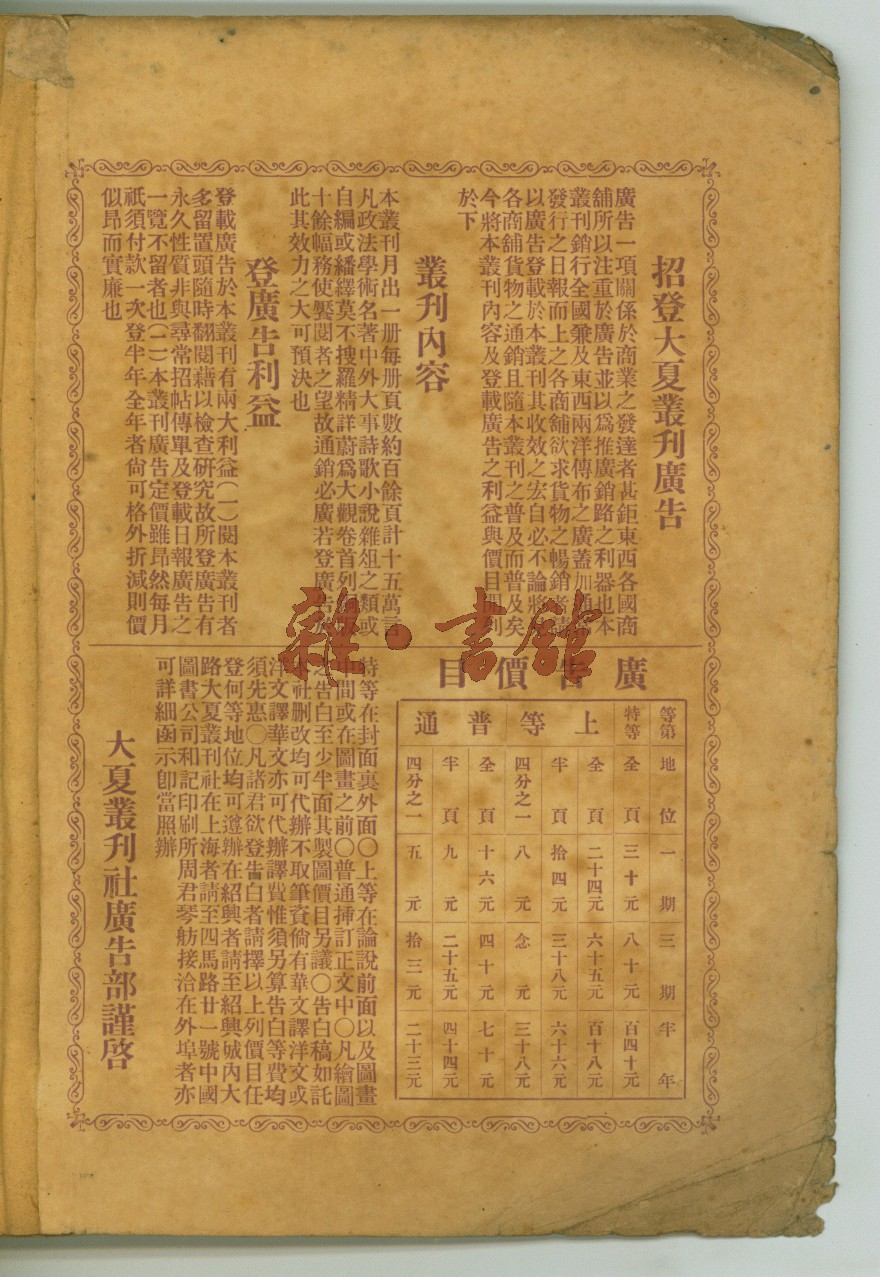 招登大夏叢刊廣告
廣告一項關係於商業之發達者甚鉅東西各國商
舖所以注重於廣告並以爲推廣銷路之利器也本
叢刊銷行全國兼及東西兩洋傳布之廣蓋加通
發行之日報而上之各商舖欲求貨物之暢銷者請
以廣告登載於本叢刊其收效之宏自必不論將
各商舖貨物之通銷且隨本叢刊之普及而普及矣
今將本叢刊內容及登載廣告之利益與價目開列
於下
叢刊內容
本叢刊月出一册每册頁數約百餘頁計十五萬言
凡政法學術名著中外大事詩歌小說雜俎之類或
自編或繙繹莫不搜羅精詳蔚爲大觀卷首列
十餘幅務使饜閱者之望故通銷必廣若登廣告於
此其效力之大可預決也
登廣告利益
登載廣告於本叢刊有兩大利益(一)閱本叢刊者
多留置頭隨時翻閱藉以檢查研究故所登廣告有
永久性質非與尋常招帖傳單及登載日報廣告之
一覽不留者也(二)本叢刊廣告定價雖昂然每月
祇須付款一次登半年全年者尙可格外折減則價
似昂而實廉也
廣告價目
等第 地位 一期 三期 半年
特等 全頁 三十元 八十元 百四十元
上等 全頁 二十四元 六十五元 百十八元
半頁 拾四元 三十八元 六十六元
四分之一 八元 念元 三十八元
普通 全頁 十六元 四十元 七十元
半頁 九元 二十五元 四十四元
四分之一 五元 拾三元 二十三元
特等在封面裏外面〇上等在論說前面以及圖畫
中間或在圖畫之前〇普通挿訂正文中〇凡繪圖
之告白至少半面其製圖價目另議〇告白稿如託
本社删改均可代辦不取筆資倘有華文譯洋文或
洋文譯華文亦可代辦譯費惟須另算告白等費均
須先惠〇凡諸君欲登告白者請擇以上列價目任
登何等地位均可遵辦在紹興者請至紹興城內大
路大夏叢刊社在上海者請至四馬路廿一號中國
圖書公司和記印刷所周君琴舫接洽在外埠者亦
可詳細函示卽當照辦
大夏叢刊社廣告部謹啓
雜·書館